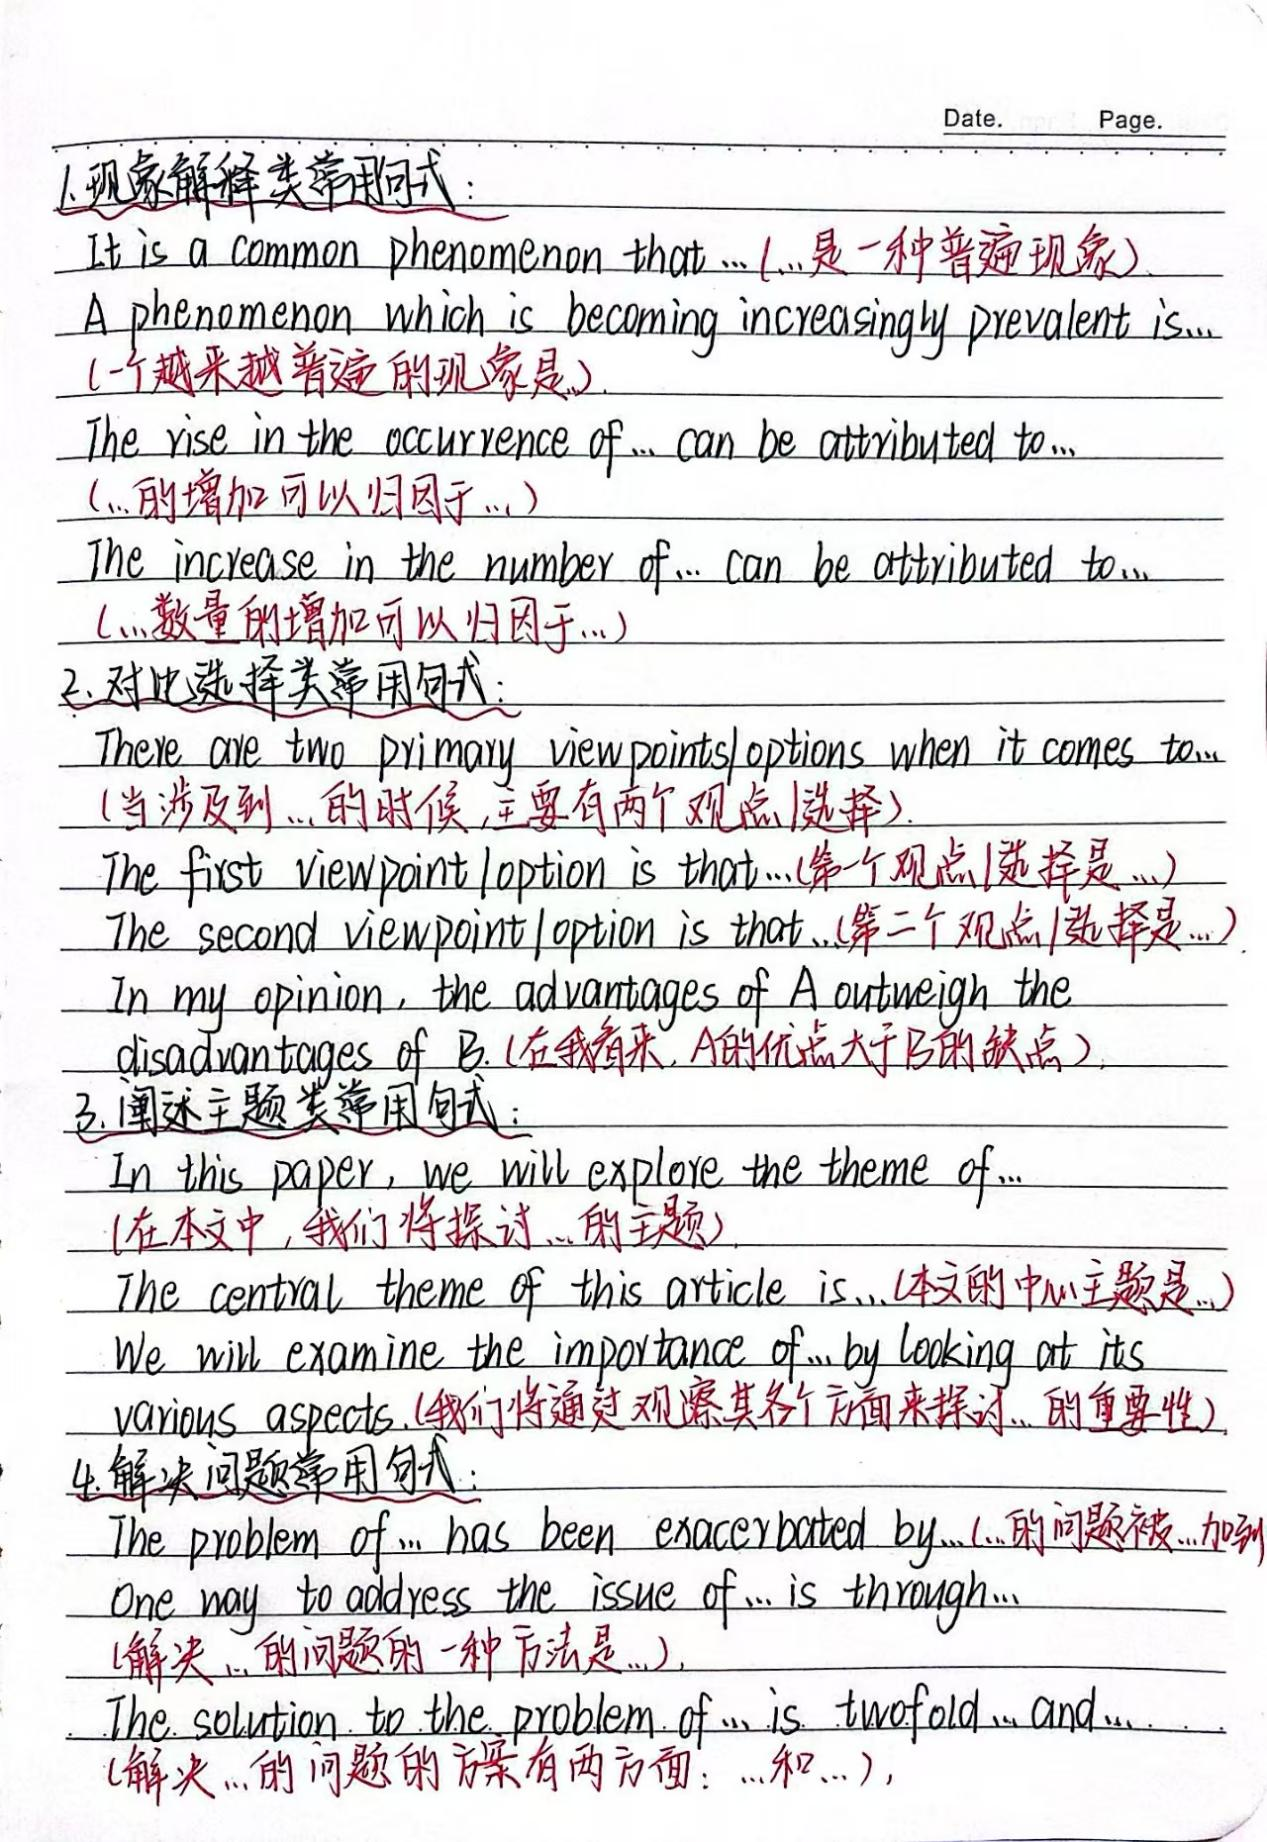 Date. Page.
1.现象解释类常用句式:
It is a common phenomenon that...(...是一种普遍现象).
A phenomenon which is becoming increasingly prevalent is...
(一个越来越普遍的现象是...).
The rise in the occurrence of... can be attributed to...
(...的增加可以归因于...)
The increase in the number of... can be attributed to...
(...数量的增加可以归因于...)
2.对比选择类常用句式:
There are two primary viewpoints/options when it comes to...
(当涉及到...的时候,主要有两个观点/选择).
The first viewpoint/option is that...(第一个观点/选择是...)
The second viewpoint/option is that...(第二个观点/选择是...).
In my opinion, the advantages of A outweigh the
disadvantages of B.(在我看来,A的优点大于B的缺点).
3.阐述主题类常用句式:
In this paper, we will explore the theme of...
(在本文中,我们将探讨...的主题).
The central theme of this article is...(本文的中心主题是...)
We will examine the importance of...by looking at its
various aspects.(我们将通过观察其各个方面来探讨...的重要性).
4.解决问题常用句式:
The problem of... has been exacerbated by...(...的问题被...加剧
One way to address the issue of... is through...
(解决...的问题的一种方法是...).
The solution to the problem of... is twofold...and...
(解决...的问题的方案有两方面:...和...).